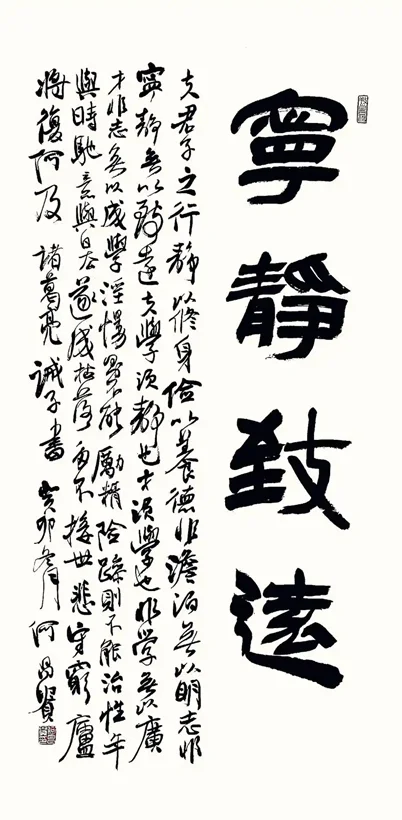 寧靜致遠
夫君子之行靜以修身儉以養德非澹泊無以明志非
寧靜無以致遠夫學須靜也才須學也非學無以廣
才非志無以成學淫慢則不能勵精險躁則不能治性年
與時馳意與日去遂成枯落多不接世悲守窮廬
將復何及 諸葛亮 誡子書 癸卯冬月 何昌賢